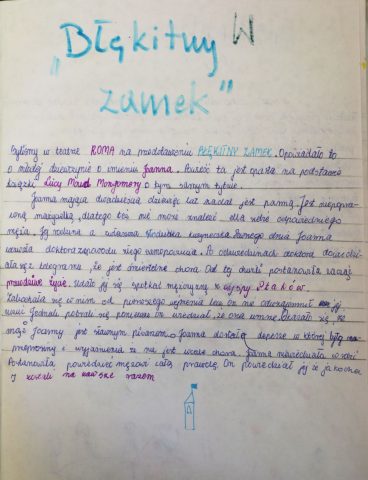 W
„Błękitny
zamek"
Byliśmy w teatrze ROMA na przedstawieniu BŁĘKITNY ZAMEK. Opowiadało to
o młodej dziewczynie o imieniu Joanna. Powieść ta jest oparta na podstawie
książki Lucy Maud Mongomery o tym samym tytule.
Joanna mająca dwadzieścia dziewięć lat nadal jest panną. Jest niepopra-
wną marzycielką, dlatego też nie może znaleźć dla siebie odpowiedniego
męża. Jej rodzina dnia Joanna
doktora z powodu złego samopoczucia. Po odwiedzinach doktora dowiedzi-
ała się z że jest śmiertelnie chora. Od tej chwili postanowiła zacząć
prawdziwe życie. Udało jej się spotkać mężczyznę z wyspy Ptaków.
Zakochała się w nim od pierwszego wejrzenia lecz on nie odwzajemnił jej
uczuć. Jednak pobrali się ponieważ on wiedział, że ona umrze. Okazało się, że
mąż Joanny jest sławnym pisarzem. Joanna dostała depeszę w której były
przeprosiny i wyjaśnienia że nie jest wcale chora. Joanna
Postanowiła powiedzieć mężowi całą prawdę. On powiedział jej że ją kocha
i zostali na zawsze razem